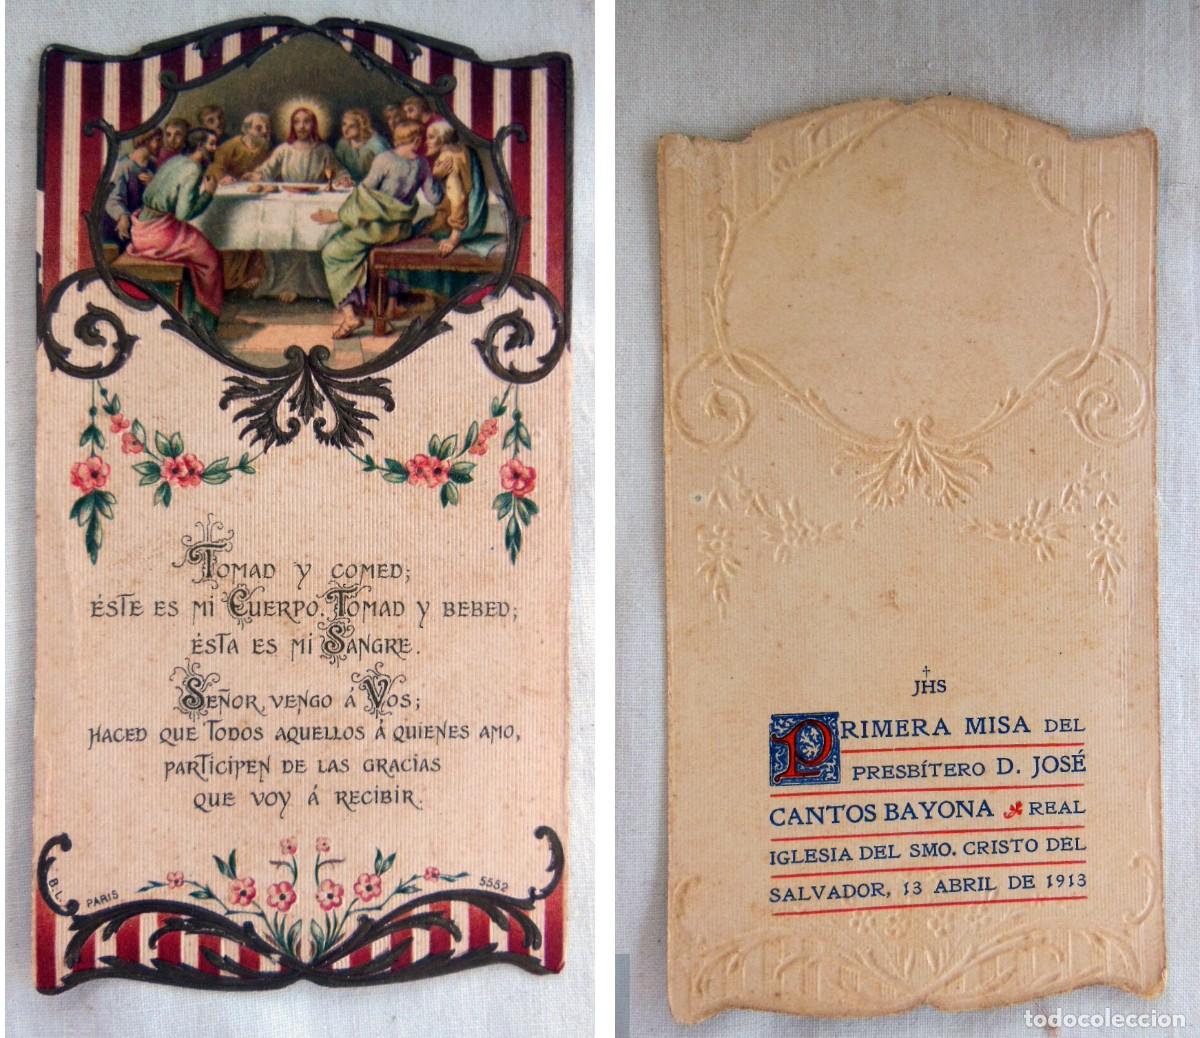 Tomad y comed;
éste es mi Cuerpo. Tomad y bebed;
ésta es mi Sangre.
Señor, vengo á Vos;
haced que todos aquellos á quienes amo,
participen de las gracias
que voy á recibir.
B. L. PARIS
5552
JHS
PRIMERA MISA DEL
PRESBÍTERO D. JOSÉ
CANTOS BAYONA REAL
IGLESIA DEL SMO. CRISTO DEL
SALVADOR, 13 ABRIL DE 1913
todocoleccion